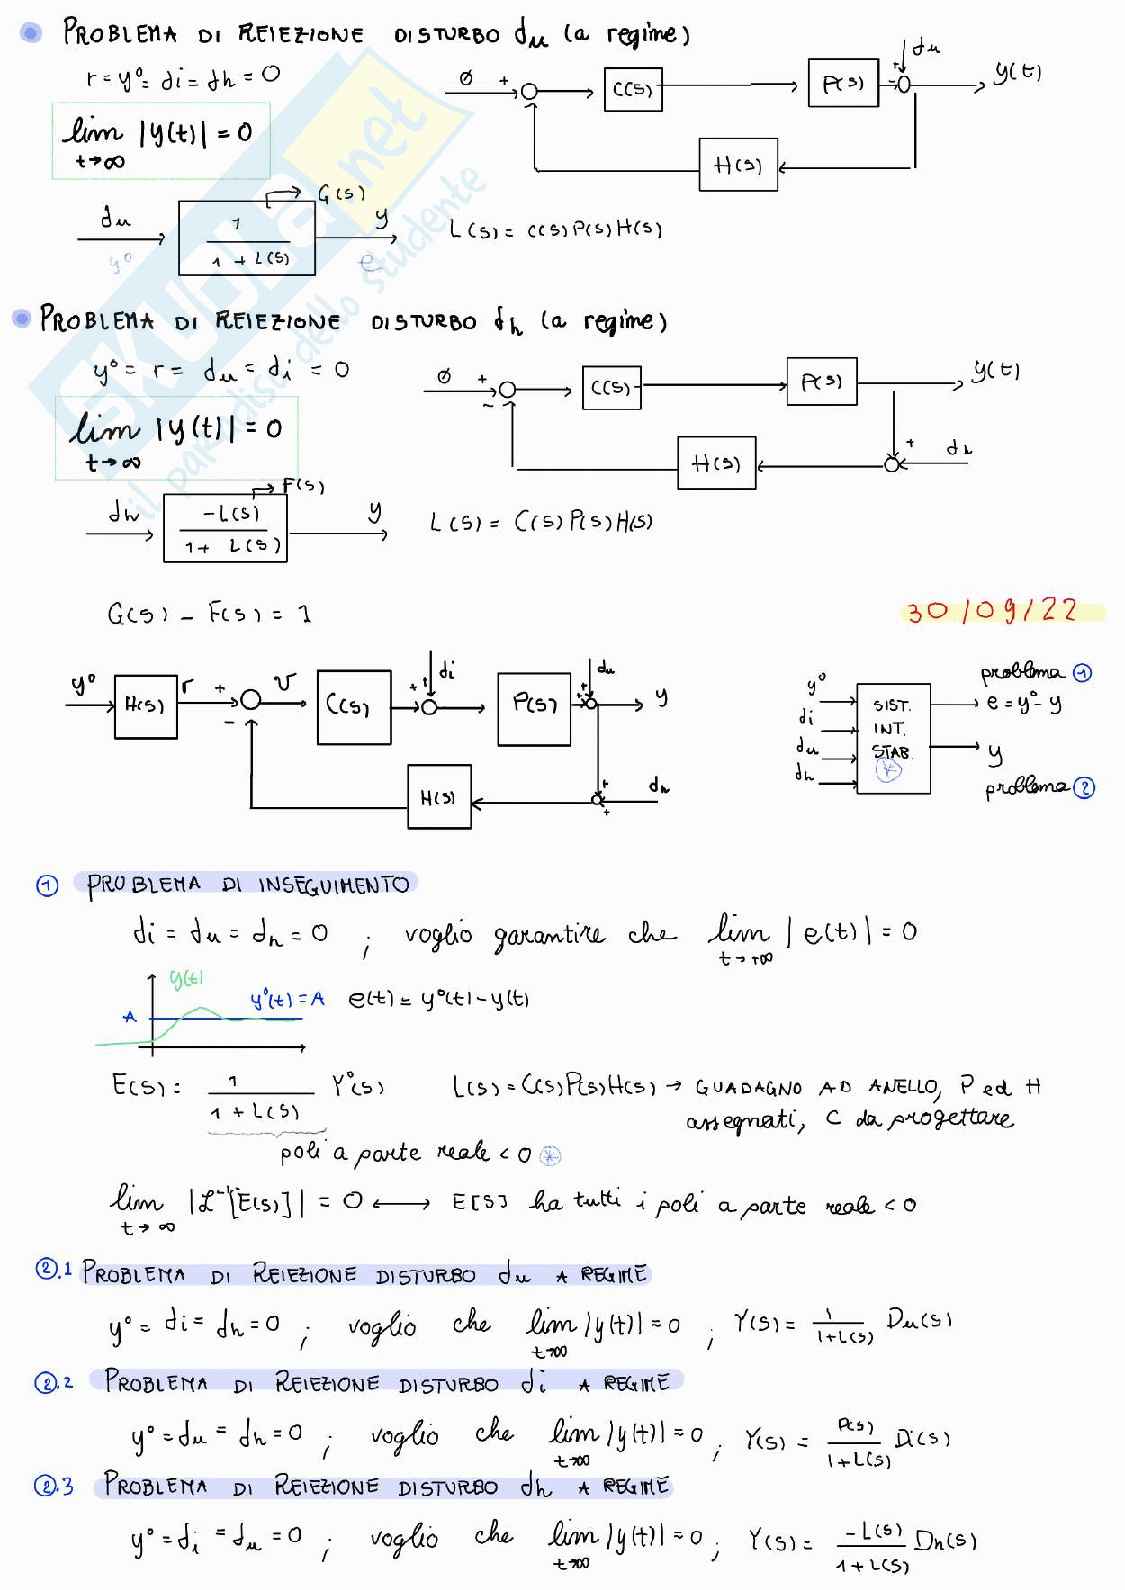 PROBLEMA DI REIEZIONE DISTURBO du (a regime)
r = y° = di = dh = 0
lim |y(t)| = 0
t→∞
Ø + C(s) P(s) du y(t)
H(s)
du 1 / 1 + L(s) G(s) y
y° e
L(s) = C(s) P(s) H(s)
PROBLEMA DI REIEZIONE DISTURBO dh (a regime)
y° = r = du = di = 0
lim |y(t)| = 0
t→∞
Ø + - C(s) P(s) y(t)
H(s) + dh
dh -L(s) / 1 + L(s) F(s) y
L(s) = C(s) P(s) H(s)
G(s) - F(s) = 1
30/09/22
y° H(s) r + - v C(s) + + di P(s) + + du y
H(s) + + dh
y° di du dh
SIST. INT. STAB. *
problema 1
e = y° - y
y
problema 2
1 PROBLEMA DI INSEGUIMENTO
di = du = dh = 0 ; voglio garantire che lim |e(t)| = 0
t→+∞
y(t)
A y°(t) = A e(t) = y°(t) - y(t)
E(s): 1 / 1 + L(s) Y°(s) L(s) = C(s) P(s) H(s) → GUADAGNO AD ANELLO, P ed H
assegnati, C da progettare
poli a parte reale < 0 *
lim |L⁻¹[E(s)]| = 0 ⟷ E[S] ha tutti i poli a parte reale < 0
t→∞
2.1 PROBLEMA DI REIEZIONE DISTURBO du A REGIME
y° = di = dh = 0 ; voglio che lim |y(t)| = 0 ; Y(s) = 1 / 1+L(s) Du(s)
t→∞
2.2 PROBLEMA DI REIEZIONE DISTURBO di A REGIME
y° = du = dh = 0 ; voglio che lim |y(t)| = 0 ; Y(s) = P(s) / 1+L(s) Di(s)
t→∞
2.3 PROBLEMA DI REIEZIONE DISTURBO dh A REGIME
y° = di = du = 0 ; voglio che lim |y(t)| = 0 ; Y(s) = -L(s) / 1+L(s) Dh(s)
t→∞
SKUOLA.net
il paradiso dello studente